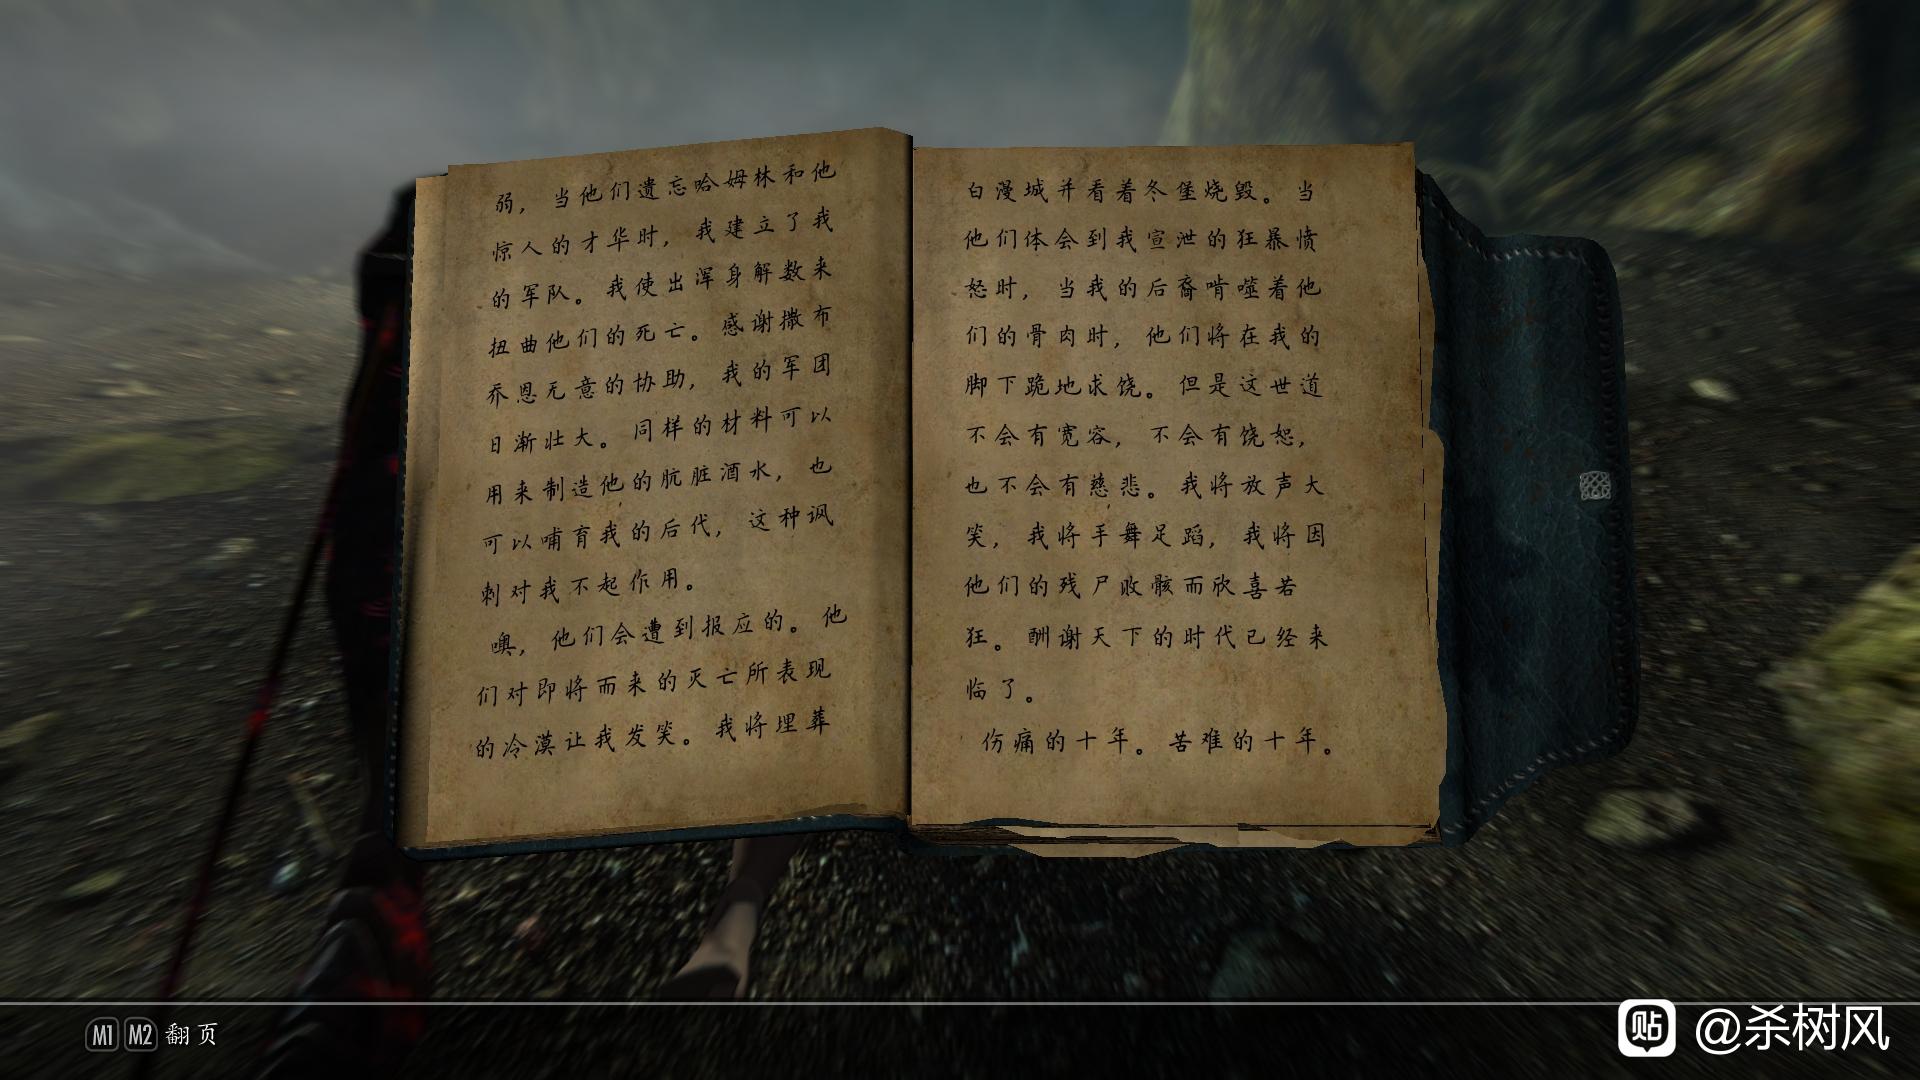 弱，当他们遗忘哈姆林和他
惊人的才华时，我建立了我
的军队。我使出浑身解数来
扭曲他们的死亡。感谢撒布
乔恩无意的协助，我的军团
日渐壮大。同样的材料可以
用来制造他的肮脏酒水，也
可以哺育我的后代，这种讽
刺对我不起作用。
噢，他们会遭到报应的。他
们对即将而来的灭亡所表现
的冷漠让我发笑。我将埋葬
白漫城并看着冬堡烧毁。当
他们体会到我宣泄的狂暴愤
怒时，当我的后裔啃噬着他
们的骨肉时，他们将在我的
脚下跪地求饶。但是这世道
不会有宽容，不会有饶恕，
也不会有慈悲。我将放声大
笑，我将手舞足蹈，我将因
他们的残尸败骸而欣喜若
狂。酬谢天下的时代已经来
临了。
伤痛的十年。苦难的十年。
M1 M2 翻页
贴 @杀树风